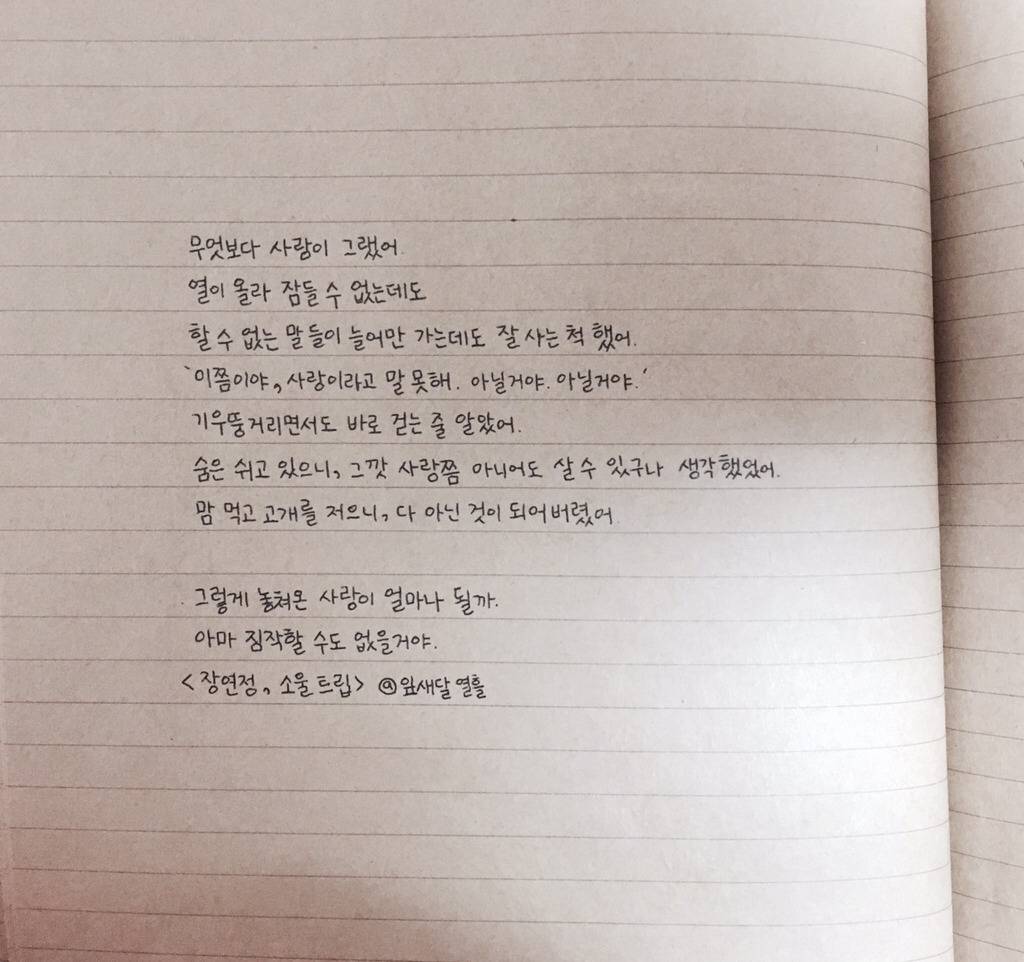 무엇보다 사랑이 그랬어.
열이 올라 잠들 수 없는데도
할 수 없는 말들이 늘어만 가는데도 잘 사는 척 했어.
'이쯤이야, 사랑이라고 말 못해. 아닐거야. 아닐거야.'
기우뚱거리면서도 바로 걷는 줄 알았어.
숨은 쉬고 있으니, 그깟 사랑쯤 아니어도 살 수 있구나 생각했었어.
맘 먹고 고개를 저으니, 다 아닌 것이 되어버렸어.
그렇게 놓쳐온 사랑이 얼마나 될까.
아마 짐작할 수도 없을거야.
<장연정, 소울 트립> @잎새달 열흘